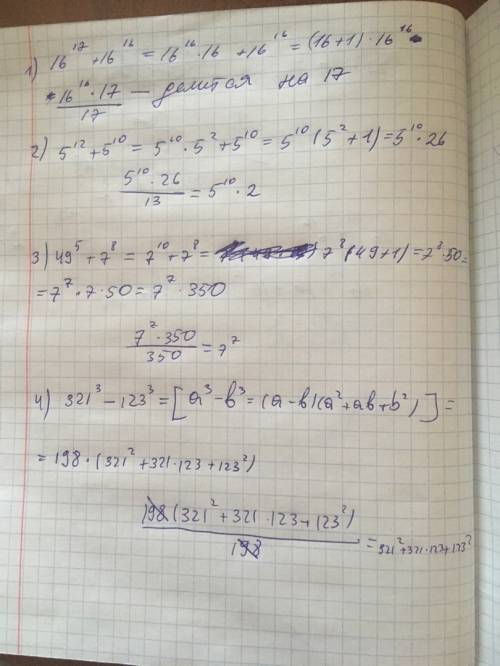 1) 16^17 + 16^16 = 16^16 · 16 + 16^16 = (16+1) · 16^16
16^16 · 17 / 17 — делится на 17
2) 5^12 + 5^10 = 5^10 · 5^2 + 5^10 = 5^10 (5^2 + 1) = 5^10 · 26
5^10 · 26 / 13 = 5^10 · 2
3) 49^5 + 7^8 = 7^10 + 7^8 = 7^8 (49+1) = 7^8 · 50 =
= 7^7 · 7 · 50 = 7^7 · 350
7^7 · 350 / 350 = 7^7
4) 321^3 − 123^3 = [a^3 − b^3 = (a − b)(a^2 + ab + b^2)] =
= 198 · (321^2 + 321 · 123 + 123^2)
198 (321^2 + 321 · 123 + 123^2) / 198 = 321^2 + 321 · 123 + 123^2